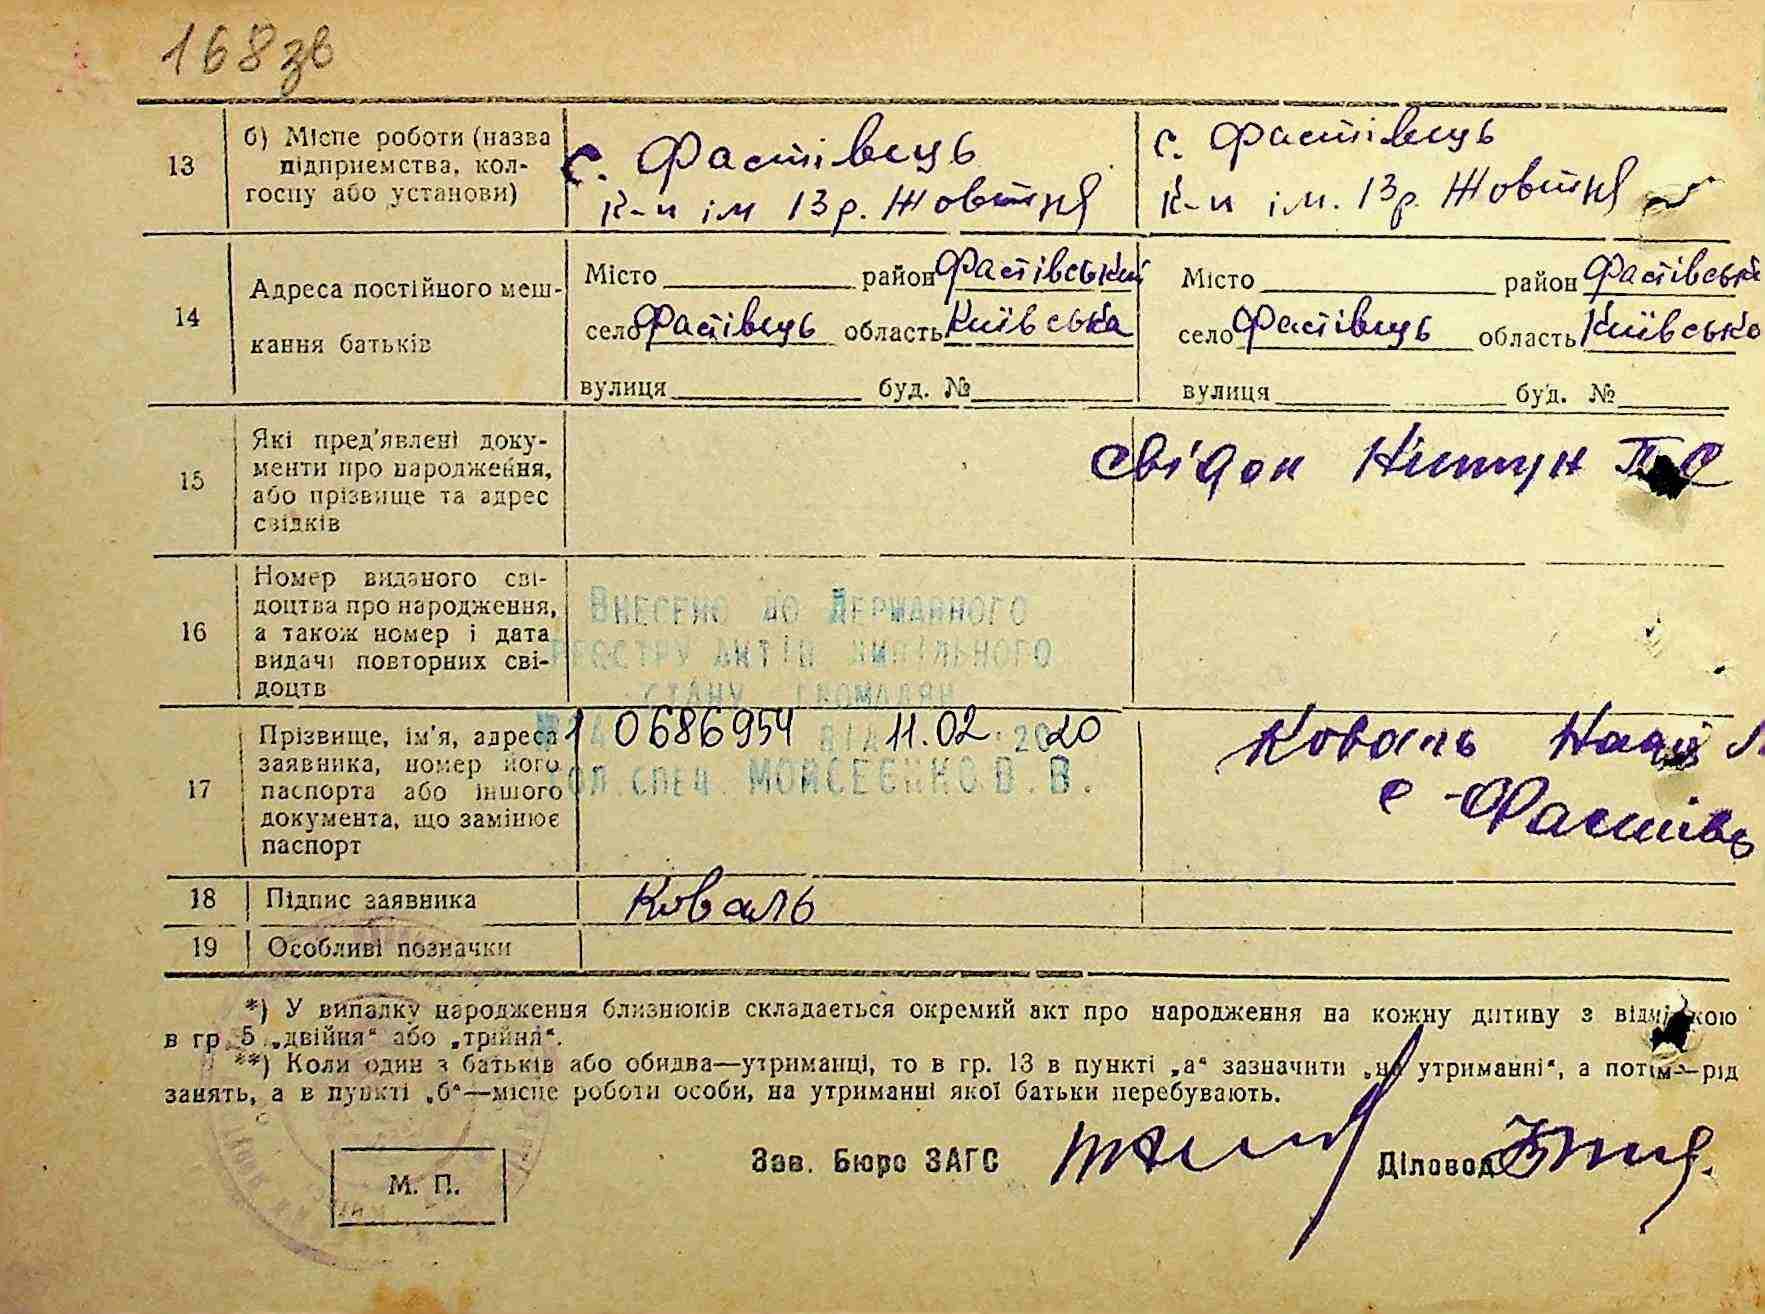 168зв
13
б) Місце роботи (назва підприємства, колгоспу або установи)
с. Фастівець
к-п ім 13 р. Жовтня
с. Фастівець
к-п ім. 13 р. Жовтня
14
Адреса постійного мешкання батьків
Місто район Фастівський
село Фастівець область Київська
вулиця буд. №
Місто район Фастівськ
село Фастівець область Київсько
вулиця буд. №
15
Які пред'явлені документи про народження, або прізвище та адрес свідків
свідок
16
Номер виданого свідоцтва про народження, а також номер і дата видачі повторних свідоцтв
Внесено до Державного
реєстру актів цивільного
стану громадян
17
Прізвище, ім'я, адреса заявника, номер його паспорта або іншого документа, що замінює паспорт
0686954 від 11.02.2020
спец. Моисеєнко В. В.
Коваль
с. Фастівець
18
Підпис заявника
Коваль
19
Особливі позначки
*) У випадку народження близнюків складається окремий акт про народження на кожну дитину з відміткою
в гр. 5 „двійня“ або „трійня“.
**) Коли один з батьків або обидва—утриманці, то в гр. 13 в пункті „а“ зазначити „на утриманні“, а потім—рід
занять, а в пункті „б“—місце роботи особи, на утриманні якої батьки перебувають.
М. П.
Зав. Бюро ЗАГС
Діловод